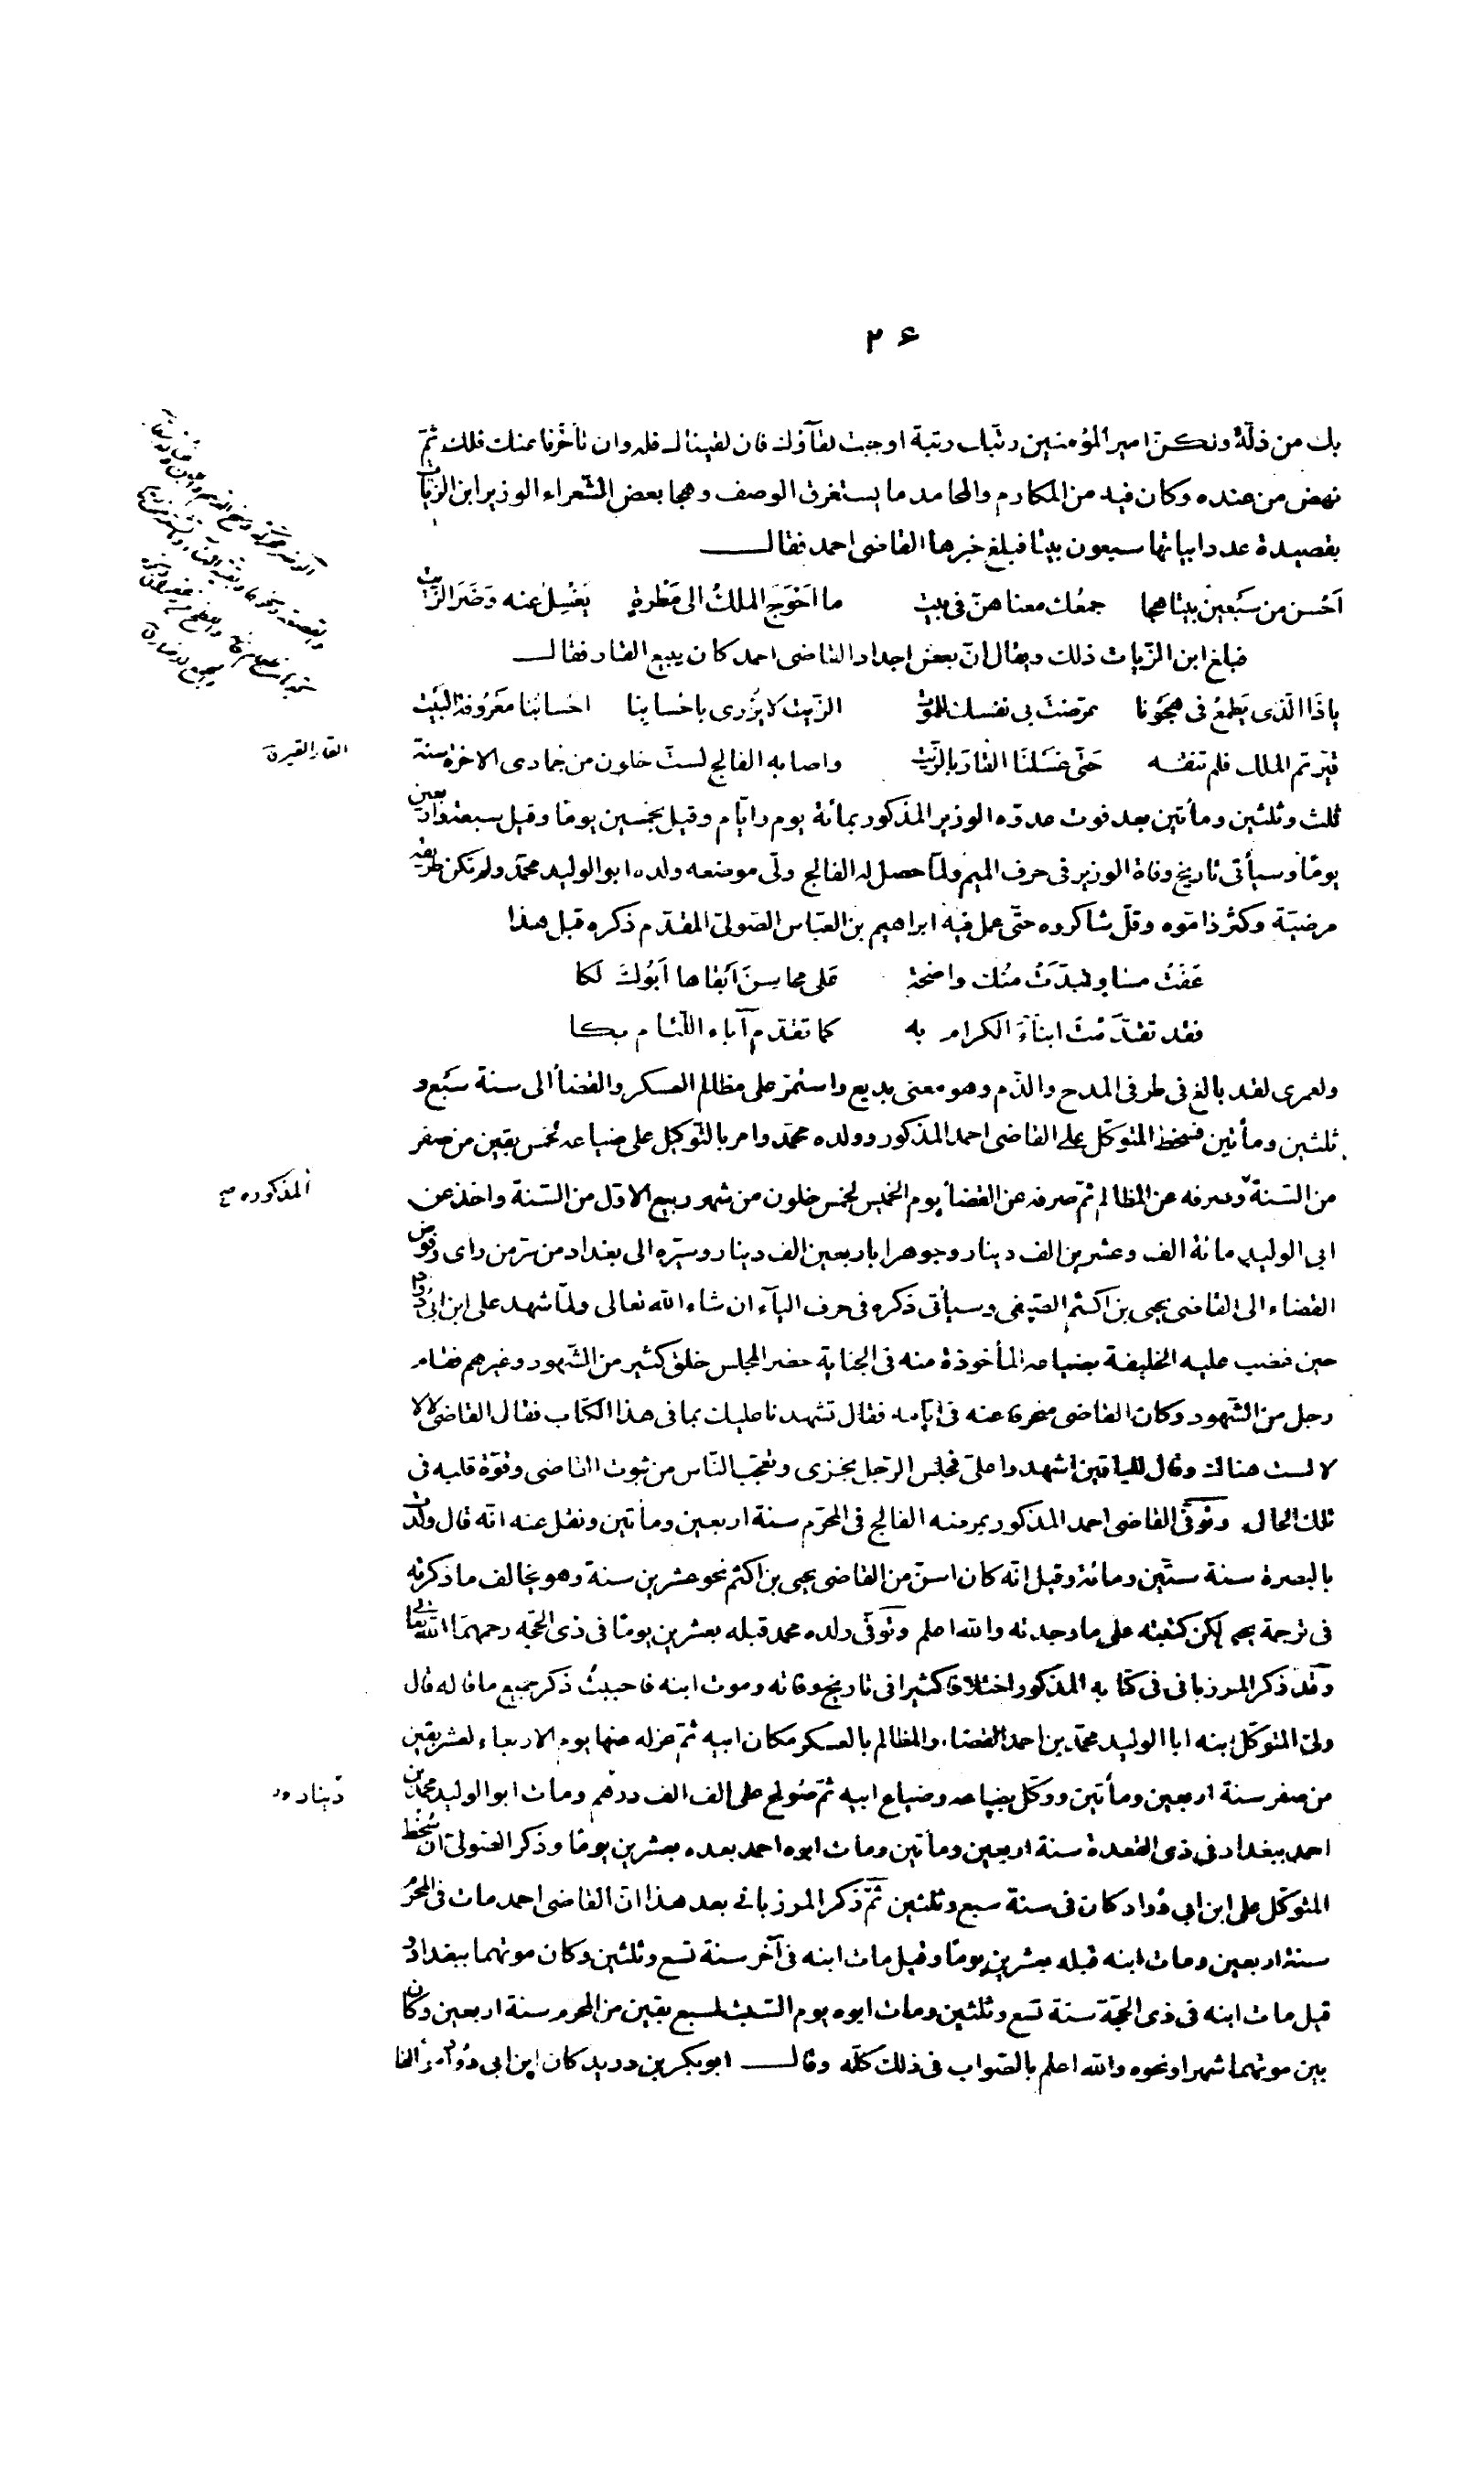 ٢۶
بك من ذلّة ولكنّ امير المؤمنين رتّبك رتبة اوجبت لقآؤك فان لقيناك فله وان تأخّرنا عنك فلك ثمّ
نهض من عنده وكان فيه من المكارم والمحامد ما يستغرق الوصف وهجا بعض الشّعراء الوزير ابن الزيات
بقصيدة عدد ابياتها سبعون بيتا فبلغ خبرها القاضى احمد فقال
اَحْسن من سَبْعينَ بيتا هجا جمعُك معناهنّ فى بيت ما اَحْوَجَ الملكُ الى مَطْرة يَغْسِلُ عنه وَضَرَ الزّيت
فبلغ ابن الزّيات ذلك ويقال انّ بعض اجداد القاضى احمد كان يبيع القار فقال
ياذَا الّذى يَطمعُ فى هَجْونا عرّضتَ بى نفسك للموت الزّيت لا يُزرى باحْسابنا احْسابُنا مَعْرُوفة البَيْت
قيّرتم الملك فلم تنقه حَتّى غَسَلنَا القارَ بالزّيت واصابه الفالج لستّ خلون من جمادى الاخرة سنة
القار القيرة
ثلث وثلثين ومأتين بعد فوت عدوّه الوزير المذكور بمائة يوم وايّام وقيل بخمسين يومًا وقيل بسبعة واربعين
يومًا وسيأتى تاريخ وفاة الوزير فى حرف الميم ولمّا حصل له الفالج ولّى موضعه ولده ابو الوليد محمّد ولم تكن طريقته
مرضيّة وكثر ذامّوه وقلّ شاكروه حتّى عمل فيه ابراهيم بن العبّاس الصّولىّ المقدّم ذكره قبل هذا
عَفَتْ مساوٍ تبدّتْ منك واضحة عَلى محاسنَ اَبقاها اَبُوكَ لَكا
فقد تقدّمتَ ابنآءَ الكرام به كما تقدّم آباء اللّئام بكا
ولعمرى لقد بالغ فى طرفى المدح والذّم وهو معنى بديع واستمرّ على مظالم العسكر والقضأ الى سنة سَبْع و
ثلثين ومأتين فسخط المتوكّل على القاضى احمد المذكور وولده محمّد وامر بالتّوكيل على ضياعه لخمس بقين من صفر
من السّنة وصرفه عن المظالم ثمّ صرفه عن القضأ يوم الخميس لخمس خلون من شهر ربيع الاوّل من السّنة واخذ من
المذكوره صح
ابى الوليد مائة الف وعشرين الف دينار وجوهرا باربعين الف دينار وسيّره الى بغداد من سرّ من رأى وفوّض
القضاء الى القاضى يحيى بن اكثم الصّيفى وسيأتى ذكره فى حرف اليآء ان شاء الله تعالى ولمّا شهد على ابن ابى دُواد
حين غضب عليه الخليفة بضياعه المأخوذة منه فى الجناية حضر المجلس خلق كثير من الشّهود وغيرهم فقام
رجل من الشّهود وكان القاضى منحرفا عنه فى ايّامه فقال تشهدنا عليك بما فى هذا الكتاب فقال القاضى لا لا
لا لست هناك وقال للباقين اشهدوا علىّ فجلس الرّجل بخزى وتعجّب النّاس من ثبوت القاضى وقوّة قلبه فى
تلك الحال وتوفّى القاضى احمد المذكور بمرضه الفالج فى المحرّم سنة اربعين ومأتين ونقل عنه انّه قال ولدت
بالبصرة سنة ستّين ومائة وقيل انّه كان اسنّ من القاضى يحيى بن اكثم نحو عشرين سنة وهو يخالف ما ذكرته
فى ترجمة يحيى لكن كتبته على ما وجدته والله اعلم وتوفّى ولده محمد قبله بعشرين يومًا فى ذى الحجّه رحمهما الله تعالى
وقد ذكر المرزبانى فى كتابه المذكور اختلافا كثيرا فى تاريخ وفاته وموت ابنه فاحببتُ ذكر جميع ما قاله قال
ولّى المتوكّل ابنه ابا الوليد محمّد بن احمد القضاء والمظالم بالعسكر مكان ابيه ثمّ عزله عنها يوم الاربعاء لعشر بقين
من صفر سنة اربعين ومأتين ووكّل بضياعه وضياع ابيه ثمّ صُولح على الف الف درهم ومات ابو الوليد محمد بن
دينار
احمد ببغداد فى ذى القعدة سنة اربعين ومأتين ومات ابوه احمد بعده بعشرين يومًا وذكر الصّولىّ انّ سُخط
المتوكّل على ابن ابى دُواد كان فى سنة سبع وثلثين ثمّ ذكر المرزبانى بعد هذا انّ القاضى احمد مات فى المحرّم
سنة اربعين ومات ابنه قبله بعشرين يومًا وقيل مات ابنه فى آخر سنة تسع وثلثين وكان موتهما ببغداد و
قيل مات ابنه فى ذى الحجّة سنة تسع وثلثين ومات ابوه يوم السّبت لسبع بقين من المحرم سنة اربعين وكان
بين موتهما شهرا ونحوه والله اعلم بالصّواب فى ذلك كلّه وقال ابو بكر بن دريد كان ابن ابى دُواد